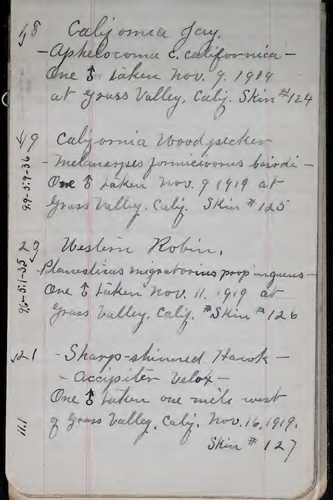 48 California Jay.
- Aphelocoma c. californica -
One ♂ taken Nov. 9. 1919
at Grass Valley, Calif. Skin #124
49 California Woodpecker
- Melanerpes formicivorus bairdi -
One ♂ taken Nov. 9 1919 at
Grass Valley. Calif. Skin #125
9.9-5.9-36
Western Robin.
- Planesticus migratorius propinquus -
One ♂ taken Nov. 11. 1919 at
Grass Valley. Calif. # Skin #126
- Sharp-shinned Hawk -
- Accipiter Velox -
One ♂ taken one mile west
of Grass Valley, Calif. Nov. 16, 1919.
Skin # 127
11.1